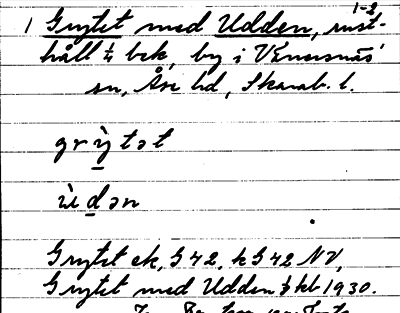 1-2
1 Grytet med Udden, rust-
håll ¼ bek, by i Vänersnäs'
sn, Åse hd, Skarab. l.
grỳtət
ùdən
Grytet ek, G 42, hG 42 NV,
Grytet med Udden kb 1930.